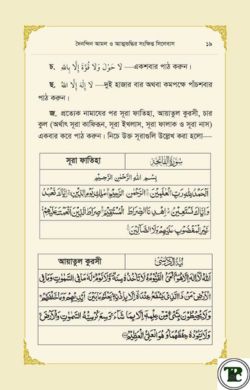 দৈনন্দিন আমল ও আত্মশুদ্ধির সংক্ষিপ্ত সিলেবাস ১৯
চ. لَا حَوْلَ وَلَا قُوَّةَ إِلَّا بِاللهِ —একশবার পাঠ করুন।
ছ. لَا إِلٰهَ إِلَّا اللهُ —দুই হাজার বার অথবা কমপক্ষে পাঁচশবার
পাঠ করুন।
জ. প্রত্যেক নামাযের পর সূরা ফাতিহা, আয়াতুল কুরসী, চার
কুল (অর্থাৎ সূরা কাফিরূন, সূরা ইখলাস, সূরা ফালাক ও সূরা নাস)
একবার করে পাঠ করুন। নিচে উক্ত সূরাগুলি উল্লেখ করা হলো—
সূরা ফাতিহা سُوْرَةُ الْفَاتِحَة
بِسْمِ اللهِ الرَّحْمٰنِ الرَّحِيْمِ
اَلْحَمْدُ لِلّٰهِ رَبِّ الْعٰلَمِيْنَ الرَّحْمٰنِ الرَّحِيْمِ مٰلِكِ يَوْمِ الدِّيْنِ اِيَّاكَ نَعْبُدُ
وَاِيَّاكَ نَسْتَعِيْنُ اِهْدِنَا الصِّرَاطَ الْمُسْتَقِيْمَ صِرَاطَ الَّذِيْنَ اَنْعَمْتَ عَلَيْهِمْ
غَيْرِ الْمَغْضُوْبِ عَلَيْهِمْ وَلَا الضَّآلِّيْنَ
আয়াতুল কুরসী اٰيَةُ الْكُرْسِيِّ
اَللهُ لَآ اِلٰهَ اِلَّا هُوَ الْحَيُّ الْقَيُّوْمُ لَا تَأْخُذُهٗ سِنَةٌ وَّلَا نَوْمٌ لَهٗ مَا فِى السَّمٰوٰتِ وَمَا فِى
الْاَرْضِ مَنْ ذَا الَّذِىْ يَشْفَعُ عِنْدَهٗٓ اِلَّا بِاِذْنِهٖ يَعْلَمُ مَا بَيْنَ اَيْدِيْهِمْ وَمَا خَلْفَهُمْ
وَلَا يُحِيْطُوْنَ بِشَىْءٍ مِّنْ عِلْمِهٖٓ اِلَّا بِمَا شَآءَ وَسِعَ كُرْسِيُّهُ السَّمٰوٰتِ وَالْاَرْضَ
وَلَا يَـُٔوْدُهٗ حِفْظُهُمَا وَهُوَ الْعَلِىُّ الْعَظِيْمُ